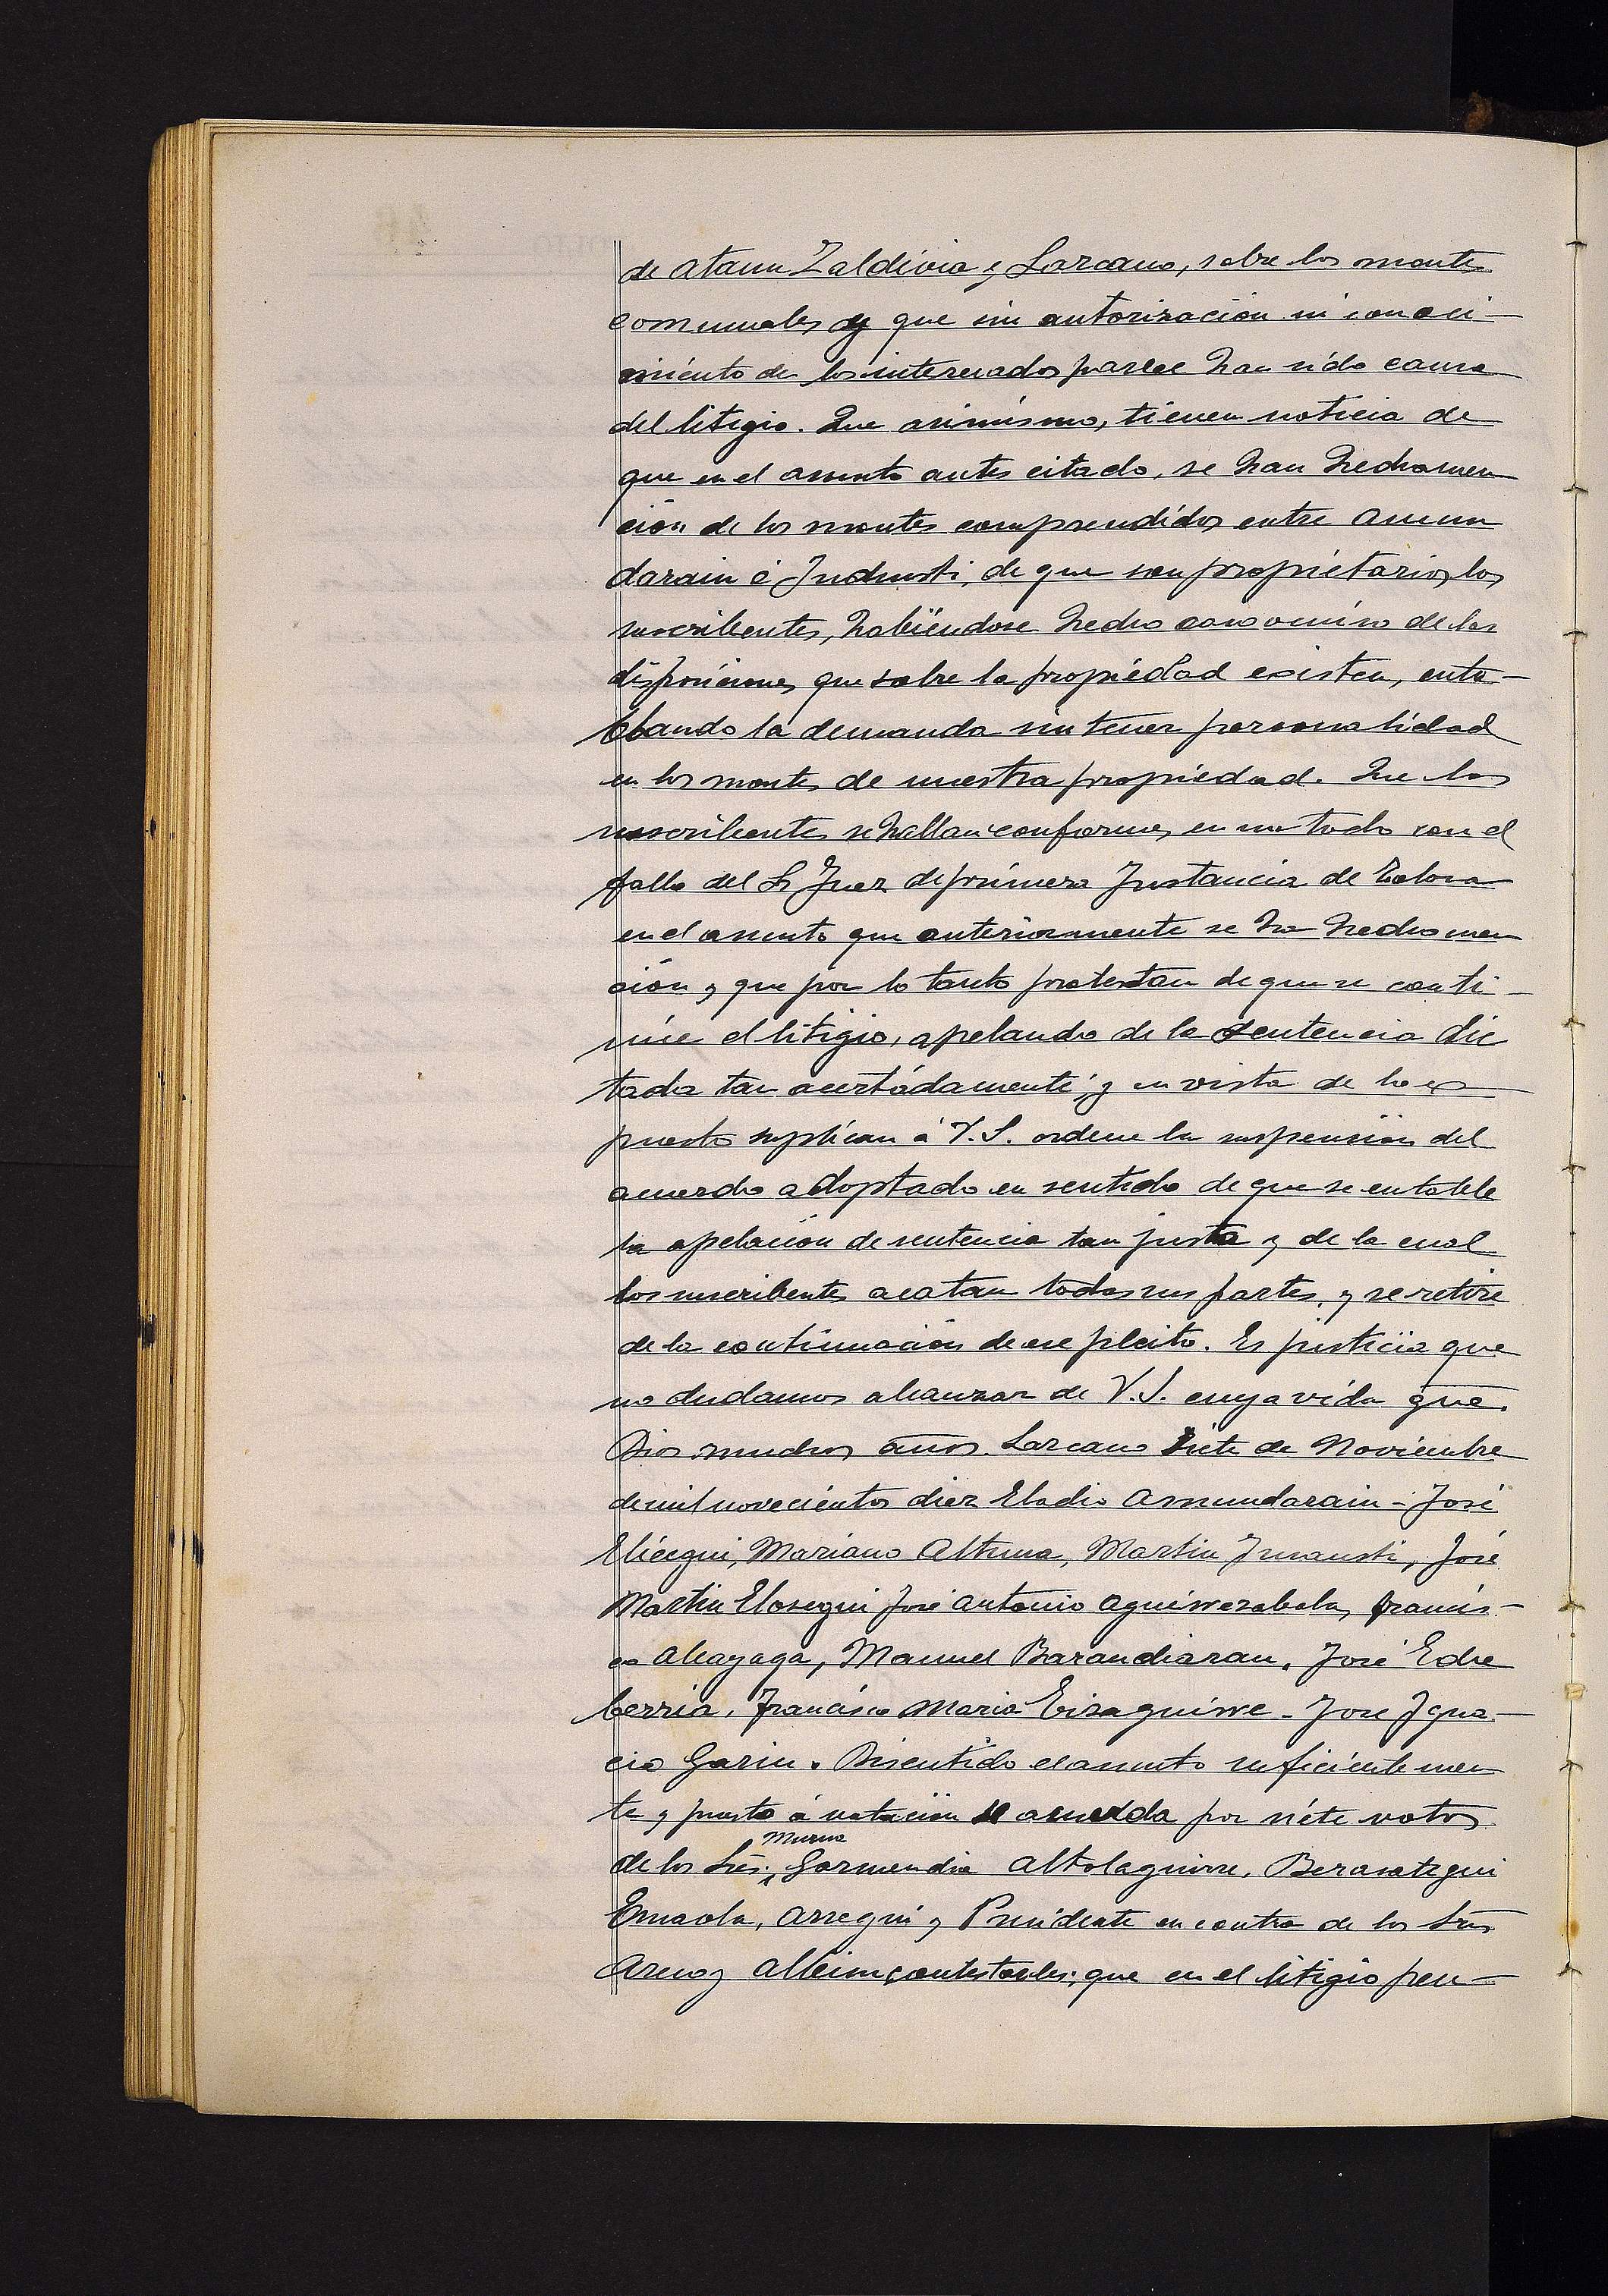 de Ataun Zaldivia y Lazcano, sobre los montes
comunales y que sin autorización ni conoci-
miento de los interesados parece han sido causa
del litigio. Que asimismo, tienen noticia de
que en el asunto antes citado, se han hecho men
ción de los montes comprendidos entre Amun
darain é Industi, de que son propietarios los
suscribentes, habiéndose hecho caso omiso de las
disposiciones que sobre la propiedad existen, enta-
blando la demanda sin tener personalidad
en los montes de nuestra propiedad. Que los
suscribentes se hallan conformes en un todo con el
fallo del Sr Juez de primera Instancia de Tolosa
en el asunto que anteriormente se ha hecho men
ción y que por lo tanto protestan de que se conti-
núe el litigio, apelando de la sentencia dic
tada tan acertádamente; y en vista de lo ex
puesto suplican á V.S. ordene la suspensión del
acuerdo adoptado en sentido de que se entable
la apelación de sentencia tan justa y de la cual
los suscribentes acatan todas sus partes, y se retire
de la continuación de ese pleito. Es justicia que
no dudamos alcanzar de V.S. cuya vida gue.
Dios muchos años. Lazcano siete de Noviembre
de mil novecientos diez Eladio Amundarain - José
Elicegui, Mariano Altuna, Martin Insausti, José
Martin Elosegui José Antonio Aguirrezabala, Francis-
co Alcayaga, Manuel Barandiaran, José Eche
berria, Francisco Maria Eizaguirre - Jose Igna-
cio Garin. Discutido el asunto suficientemen
te y puesto á votación se acuerda por siete votos
de los Sres. Murua Garmendia Altolaguirre, Berasategui
Emaola, Arregui y Presidente en contra de los Srs
Areno y Alberim contestarles; que en el litigio pen-